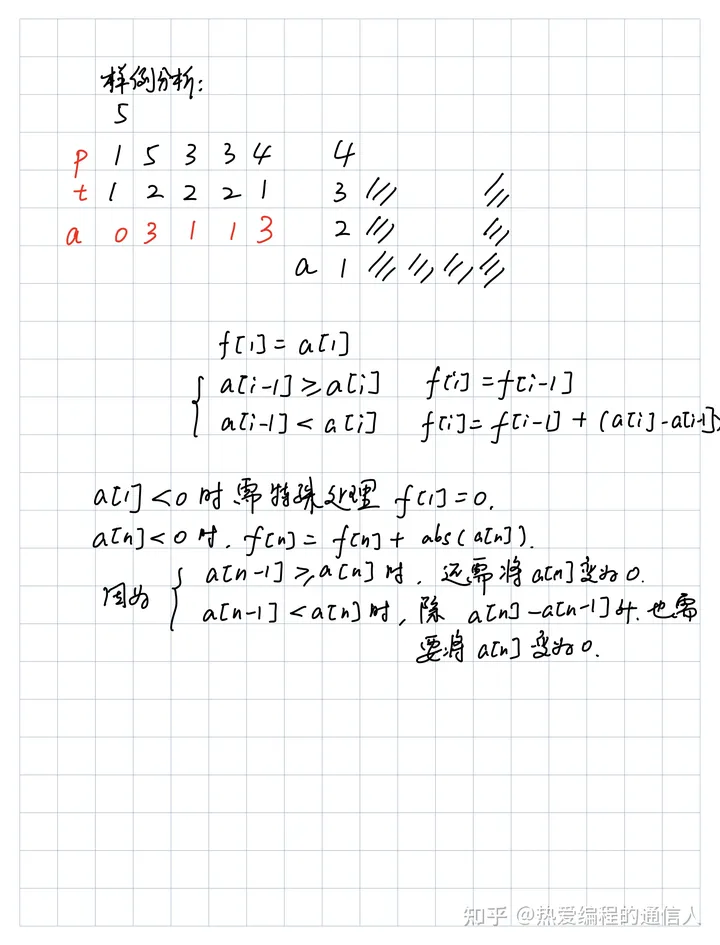 样例分析:
5
p 1 5 3 3 4
t 1 2 2 2 1
a 0 3 1 1 3
4
3
2
a 1
f[1] = a[1]
a[i-1] ≥ a[i] f[i] = f[i-1]
a[i-1] < a[i] f[i] = f[i-1] + (a[i]-a[i-1])
a[1] < 0 时需特殊处理 f[1] = 0.
a[n] < 0 时, f[n] = f[n] + abs(a[n]).
因为 a[n-1] ≥ a[n] 时, 还需将 a[n] 变为 0.
a[n-1] < a[n] 时, 除 a[n]-a[n-1] 外, 也需
要将 a[n] 变为 0.
知乎 @热爱编程的通信人